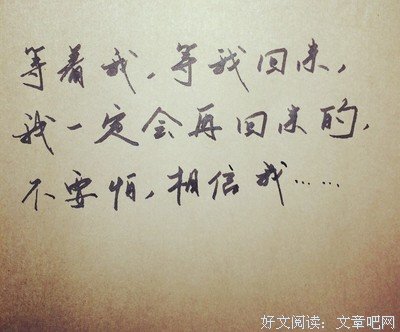 等着我，等我回来，
我一定会再回来的，
不要怕，相信我……
好文阅读：文章吧网